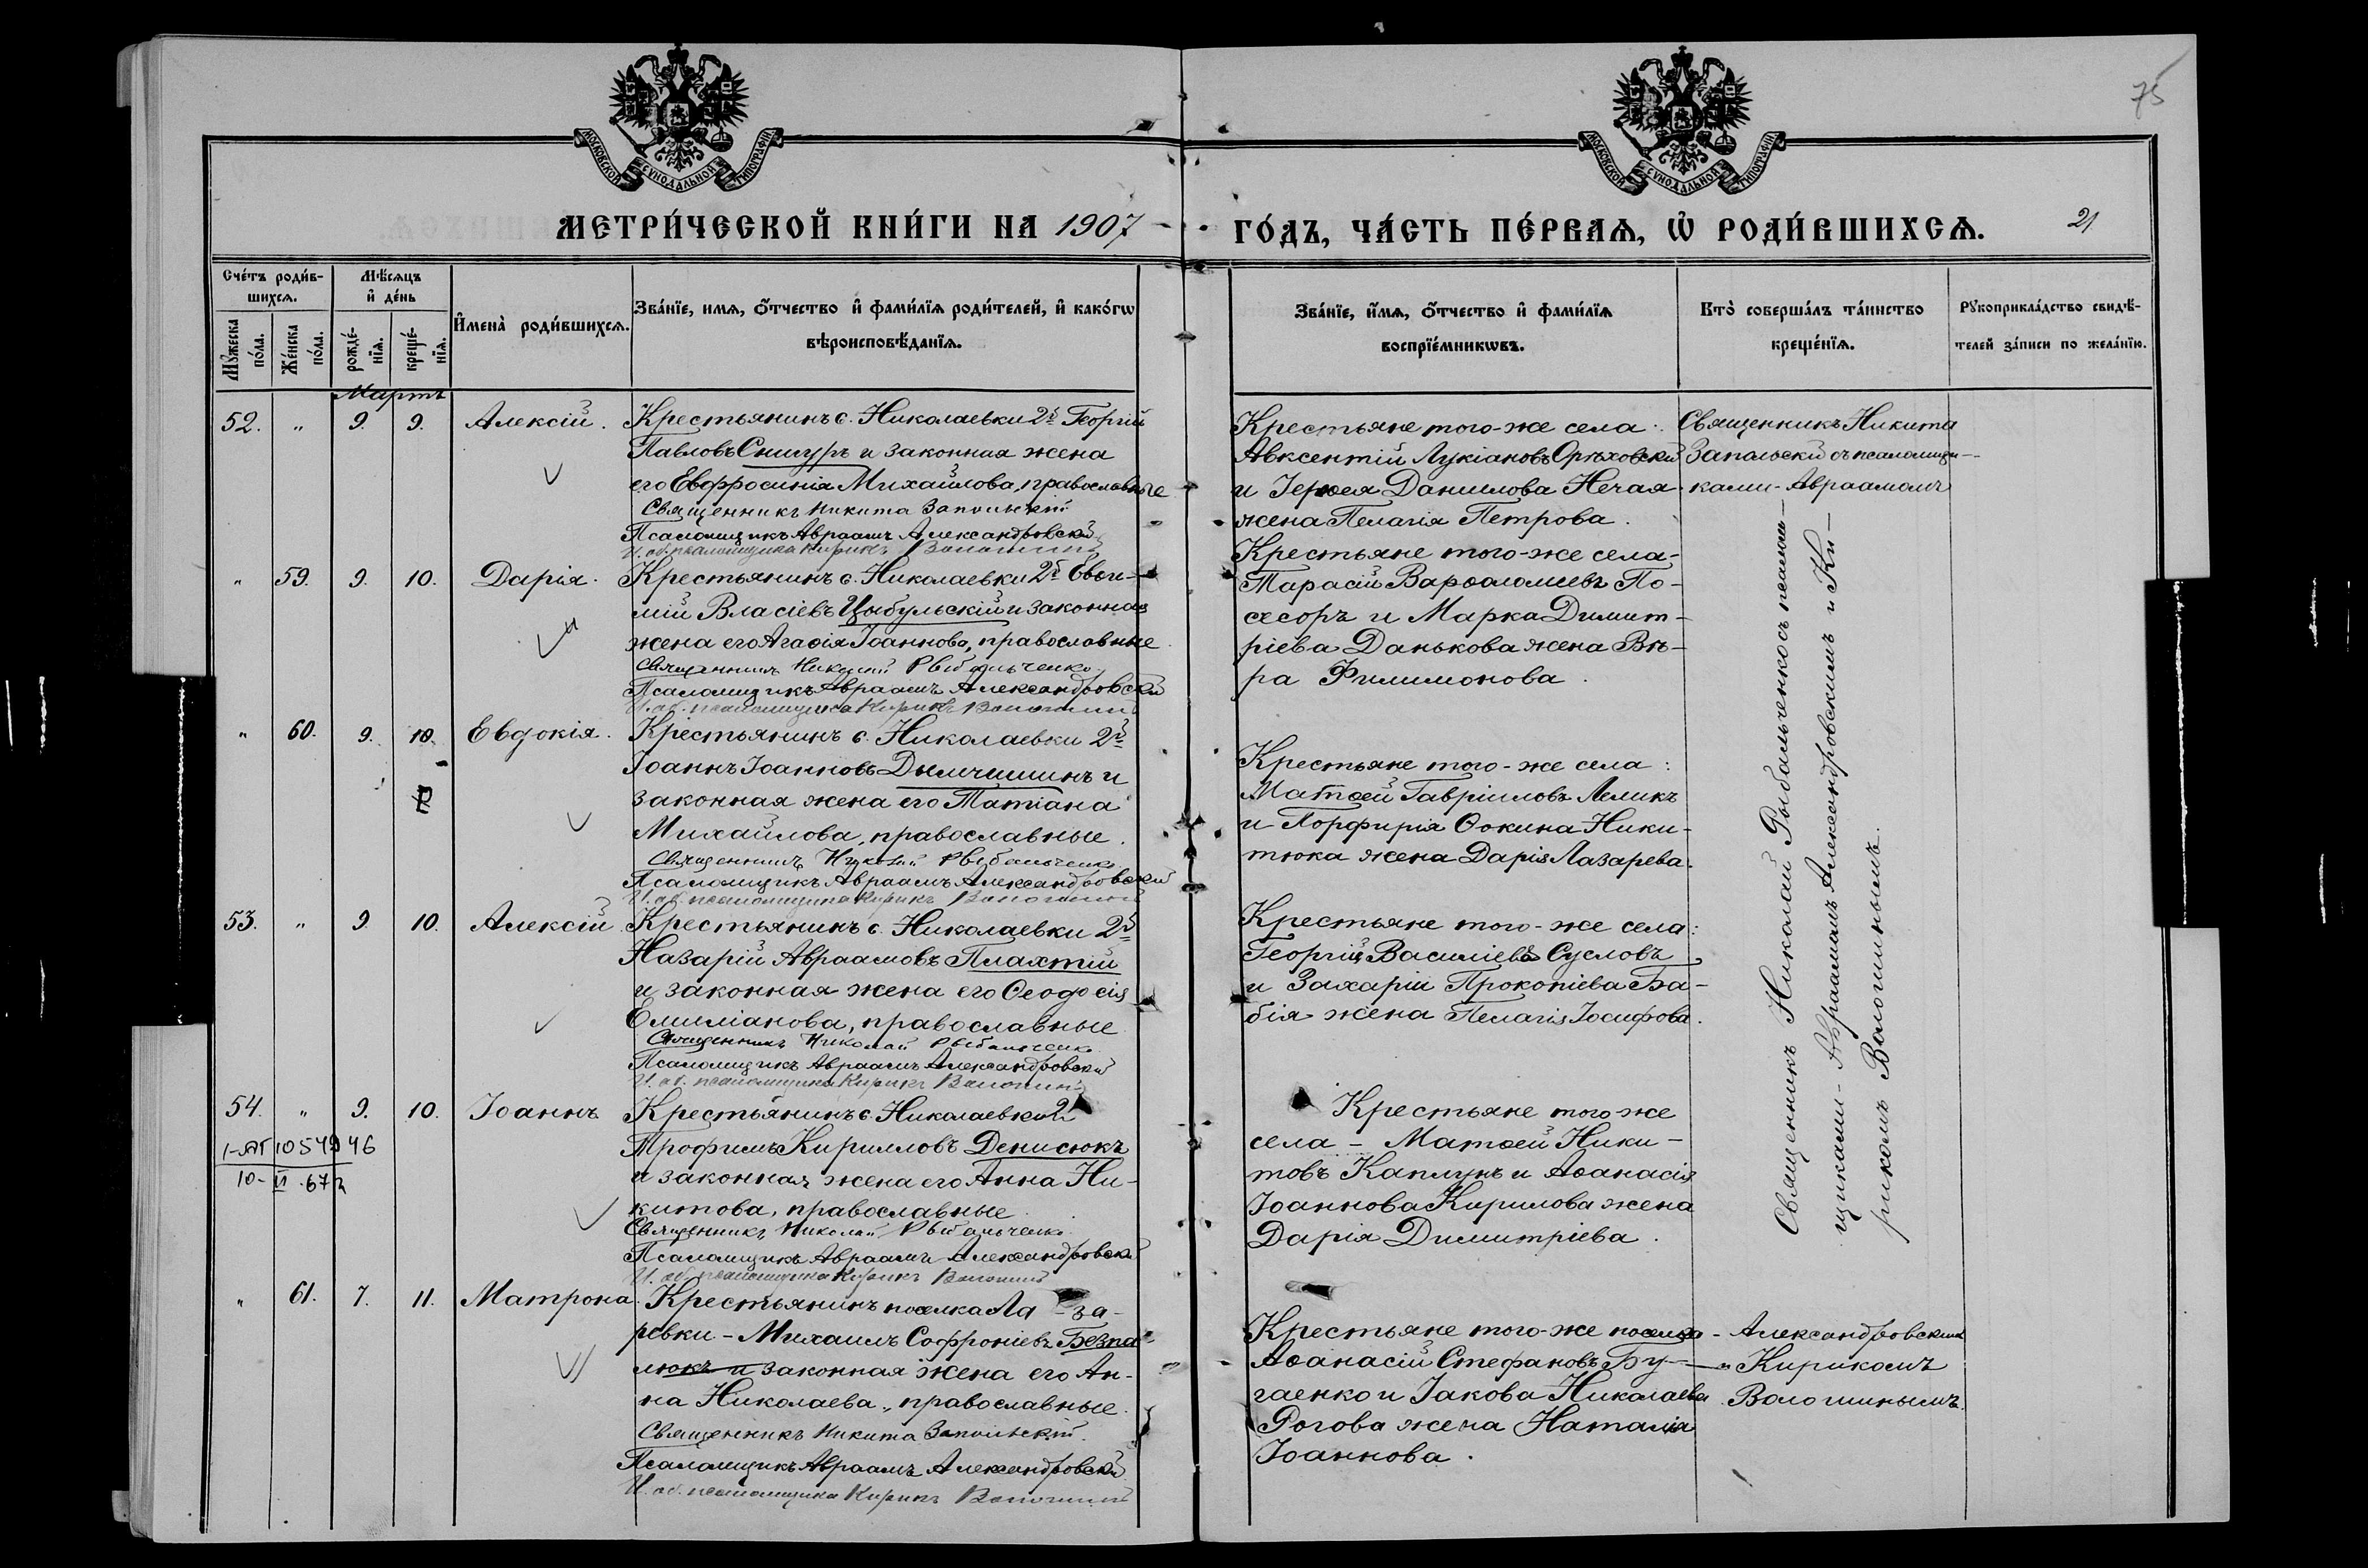 75
МОСКОВСКОЙ СѴНОДАЛЬНОЙ ТИПОГРАФІИ
МОСКОВСКОЙ СѴНОДАЛЬНОЙ ТИПОГРАФІИ
МЕТРИ́ЧЕСКОЙ КНИ́ГИ НА 1907
ГО́ДЪ, ЧА́СТЬ ПЕ́РВАѦ, Ѡ҆ РОДИ́ВШИХСѦ.
21
Сче́тъ роди́в-
шихсѧ.
Мѣ́сѧцъ
и҆ де́нь
Мꙋ́жеска
по́ла.
Же́нска
по́ла.
рожде́-
нїѧ.
креще́-
нїѧ.
И҆мена̀ роди́вшихсѧ.
Зва́нїе, имѧ, ѻ҆́тчество и҆ фами́лїѧ роди́телей, и҆ како́гѡ
вѣроисповѣ́данїѧ.
Зва́нїе, и҆́мѧ, ѻ҆́тчество и҆ фами́лїѧ
воспрїе́мникѡвъ.
Кто̀ соверша́лъ та́инство
креще́нїѧ.
Рꙋкоприкла́дство свидѣ́-
телей за́писи по жела́нїю.
Мартъ
52. " 9. 9. Алексій. Крестьянинъ с. Николаевки 2й Георгій
Павловъ Снигуръ и законная жена
его Евфросинія Михайлова, православные
Священникъ Никита Запольскій
Псаломщикъ Авраамъ Александровскій
И. об. псаломщика Кирикъ Волошинъ
Крестьяне того-же села:
Авксентій Лукіановъ Орѣховскій
и Іерѳея Даниилова Нечая
жена Пелагія Петрова.
Священникъ Никита
Запольскій съ псаломщи-
ками - Авраамомъ
" 59. 9. 10. Дарія. Крестьянинъ с. Николаевки 2й Евѳи-
мій Власіевъ Цыбульскій и законная
жена его Агаѳія Іоаннова, православные
Священникъ Николай Рыбальченко
Псаломщикъ Авраамъ Александровскій
И. об. псаломщика Кирикъ Волошинъ
Крестьяне того-же села-
Тарасій Варѳоломеевъ По-
схоръ и Марка Димит-
ріева Данькова жена Вѣ-
ра Филимонова.
" 60. 9. 10. Евдокія. Крістьянинъ с. Николаевки 2й
Іоаннъ Іоанновъ Дымчишинъ и
законная жена его Татіана
Михайлова, православные.
Священникъ Николай Рыбальченко
Псаломщикъ Авраамъ Александровскій
И. об. псаломщика Кирикъ Волошинъ
Крестьяне того-же села:
Матѳей Гавріиловъ Лемикъ
и Порфирія Ѳокина Ники-
тюка жена Дарія Лазарева.
53. " 9. 10. Алексій Крестьянинъ с. Николаевки 2й
Назарій Авраамовъ Плахтій
и законная жена его Ѳеодосія
Емиліанова, православные
Священникъ Николай Рыбальченко
Псаломщикъ Авраамъ Александровскій
И. об. псаломщика Кирикъ Волошинъ
Крестьяне того-же села:
Георгій Василіевъ Сусловъ
и Захаріи Прокопіева Ба-
бія жена Пелагія Іосифова.
54. " 9. 10. Іоаннъ Крестьянинъ с. Николаевки 2й
Трофимъ Кирилловъ Денисюкъ
и законная жена его Анна Ни-
китова, православные
Священникъ Николай Рыбальченко
Псаломщикъ Авраамъ Александровскій
И. об. псаломщика Кирикъ Волошинъ
1054946
10-II-67г
Крестьяне того же
села - Матѳей Ники-
товъ Каплунъ и Аѳанасія
Іоаннова Кирилова жена
Дарія Димитріева.
Священникъ Николай Рыбальченко съ псалом-
щиками - Авраамомъ Александровскимъ и Ки-
рикомъ Волошинымъ.
" 61. 7. 11. Матрона. Крестьянинъ поселка Ла-за-
ревки - Михаилъ Софроніевъ Безпа-
люкъ и законная жена его Ан-
на Николаева, православные.
Священникъ Никита Запольскій.
Псаломщикъ Авраамъ Александровскій
И. об. псаломщика Кирикъ Волошинъ
Крестьяне того-же поселка
Аѳанасій Стефановъ Бу-
гаенко и Іакова Николаева
Рогова жена Наталія
Іоаннова.
- Александровскимъ
и Кирикомъ
Волошинымъ.